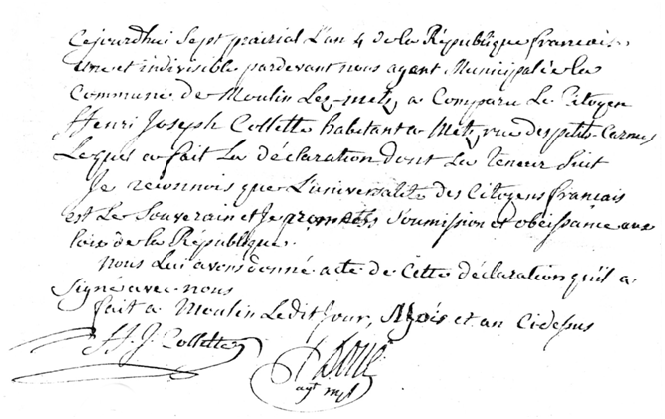 Cejourdhui Sept prairial L'an 4 de la République francaise
une et indivisible pardevant nous agent Municipal de la
Commune de Moulin Lez-metz a Comparu Le Citoyen
Henri Joseph Collette habitant a Metz, rue des petits Carmes
Lequel a fait La déclaration dont La teneur Suit
Je reconnois que L'universalité des Citoyens francais
est Le Souverain et Je promets Soumission et obéissance aux
loix de la République.
nous Lui avons donné acte de Cette déclaration qu'il a
Signé avec nous
fait a Moulin Ledit Jour, Mois et an Cidessus
H. J. Collette
agt mpl